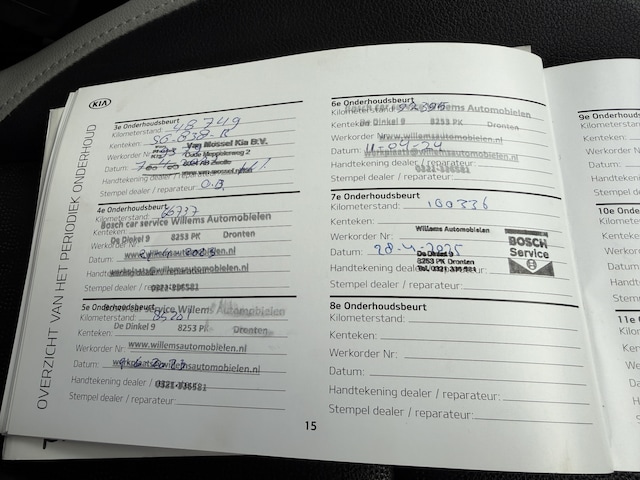 KIA
OVERZICHT VAN HET PERIODIEK ONDERHOUD
3e Onderhoudsbeurt
Kilometerstand: 48749
Kenteken: SG-838-B
Van Mossel Kia B.V.
Werkorder Nr:
Oude Meppelerweg 2
Datum:
www.van-mossel.nl
Handtekening dealer / reparateur:
Stempel dealer / reparateur:
4e Onderhoudsbeurt
Kilometerstand: 66737
Bosch car service Willems Automobielen
Kenteken:
De Dinkel 9 8253 PK Dronten
Werkorder Nr:
www.willemsautomobielen.nl
Datum:
werkplaats@willemsautomobielen.nl
Handtekening dealer / reparateur:
0321-336581
Stempel dealer / reparateur:
5e Onderhoudsbeurt
Bosch car service Willems Automobielen
Kilometerstand: 85201
De Dinkel 9 8253 PK Dronten
Kenteken:
www.willemsautomobielen.nl
Werkorder Nr:
Datum:
Handtekening dealer / reparateur:
0321-336581
Stempel dealer / reparateur:
15
6e Onderhoudsbeurt
Bosch car service Willems Automobielen
Kilometerstand: 92395
De Dinkel 9 8253 PK Dronten
Kenteken:
Werkorder Nr:
www.willemsautomobielen.nl
Datum: 11-04-24
werkplaats@willemsautomobielen.nl
Handtekening dealer / reparateur:
0321-336581
Stempel dealer / reparateur:
7e Onderhoudsbeurt
Kilometerstand: 100336
Kenteken:
Willems Automobielen
Werkorder Nr:
Datum: 28-4-2025
De Dinkel 9
8253 PK Dronten
Tel. 0321-336581
BOSCH
Service
Handtekening dealer / reparateur:
Stempel dealer / reparateur:
8e Onderhoudsbeurt
Kilometerstand:
Kenteken:
Werkorder Nr:
Datum:
Handtekening dealer / reparateur:
Stempel dealer / reparateur:
9e Onderh
Kilometers
Kenteken:
Werkorder
Datum:
Handteken
Stempel de
10e Ond
Kilomete
Kenteke
Werkor
Datum:
Handte
Stemp
11e O
Kilom
Kent
Wer
Dat
Han